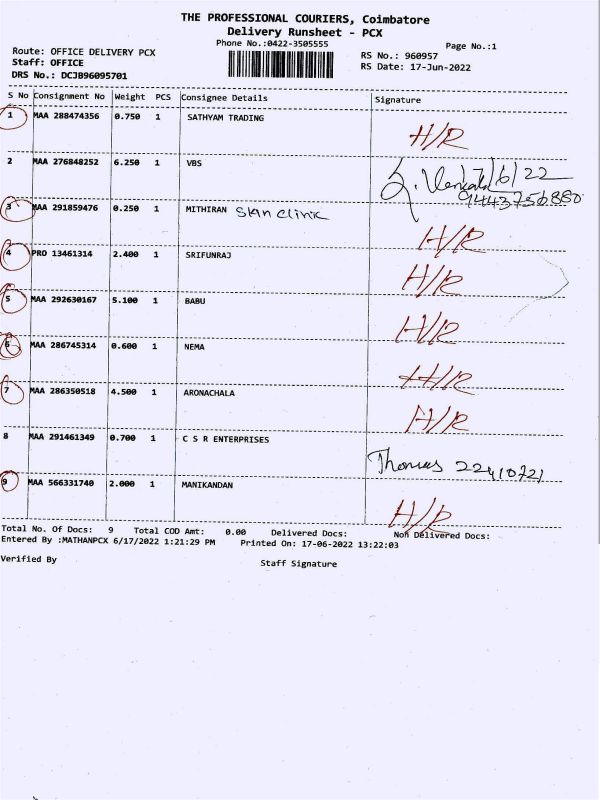 THE PROFESSIONAL COURIERS, Coimbatore
Delivery Runsheet - PCX
Phone No.:0422-3505555
Page No.:1
Route: OFFICE DELIVERY PCX
RS No.: 960957
Staff: OFFICE
RS Date: 17-Jun-2022
DRS No.: DCJB96095701
S No Consignment No Weight PCS Consignee Details Signature
1 MAA 288474356 0.750 1 SATHYAM TRADING H/R
2 MAA 276848252 6.250 1 VBS
9443756880
3 MAA 291859476 0.250 1 MITHIRAN Skin clinic H/R
4 PRO 13461314 2.400 1 SRIFUNRAJ H/R
5 MAA 292630167 5.100 1 BABU H/R
6 MAA 286745314 0.600 1 NEMA H/R
7 MAA 286350518 4.500 1 ARONACHALA H/R
8 MAA 291461349 0.700 1 C S R ENTERPRISES Thomas
9 MAA 566331740 2.000 1 MANIKANDAN H/R
Total No. Of Docs: 9 Total COD Amt: 0.00 Delivered Docs: Non Delivered Docs:
Entered By :MATHANPCX 6/17/2022 1:21:29 PM Printed On: 17-06-2022 13:22:03
Verified By Staff Signature